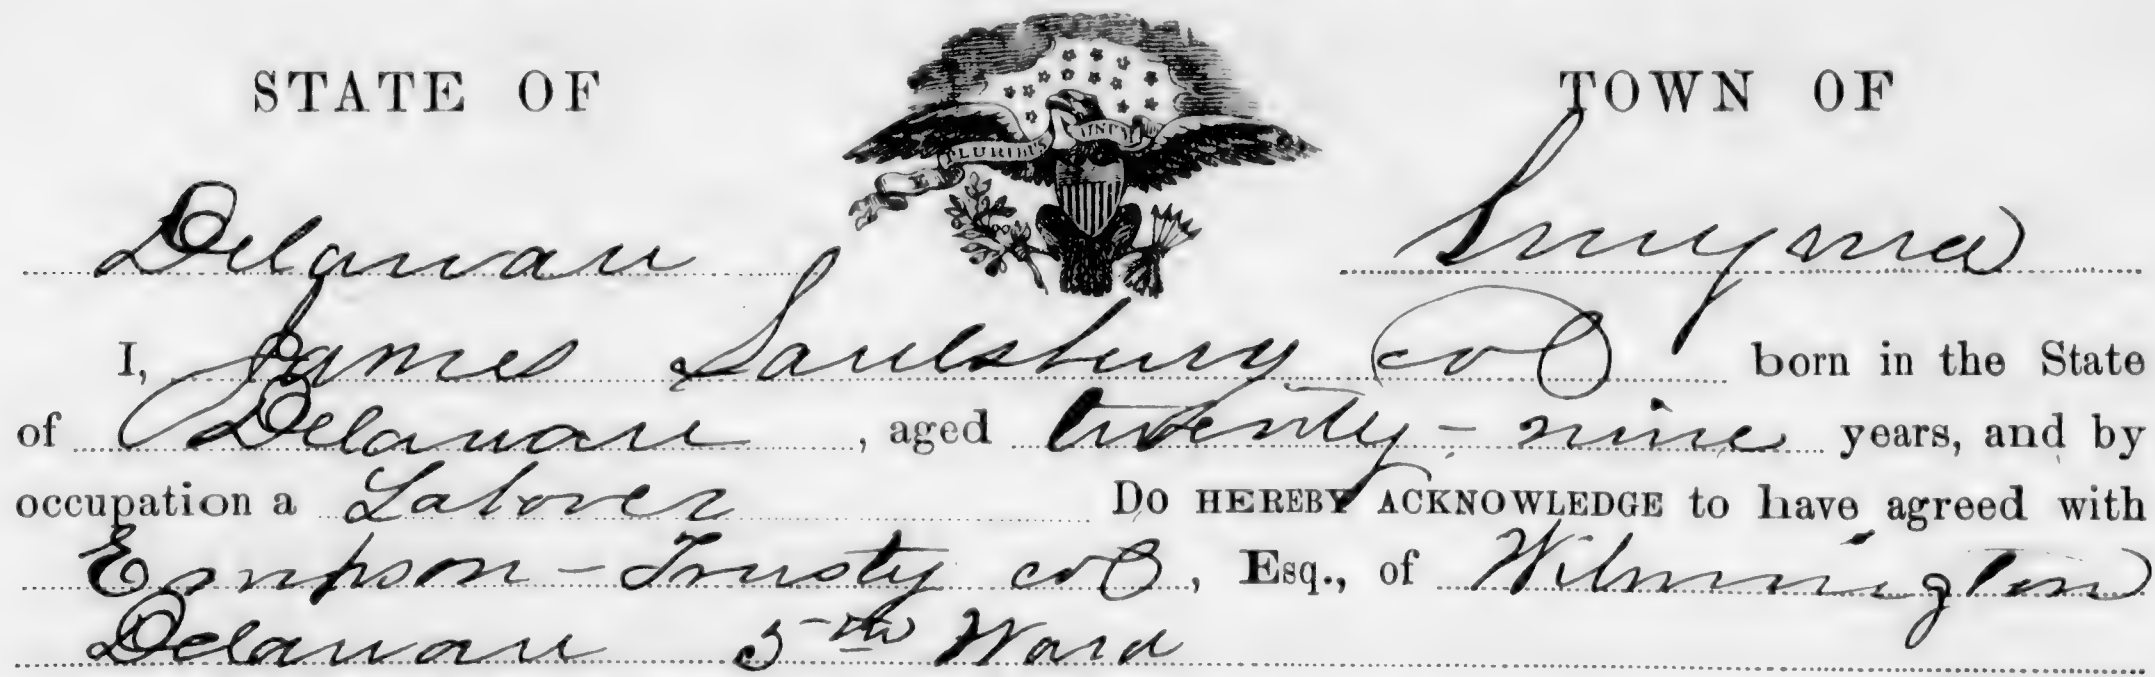 STATE OF TOWN OF
E PLURIBUS UNUM
Delaware Smyrna
I, James Saulsbury col born in the State
of Delaware, aged twenty-nine years, and by
occupation a Laborer Do HEREBY ACKNOWLEDGE to have agreed with
Empson-Trusty col, Esq., of Wilmington
Delaware 5th Ward